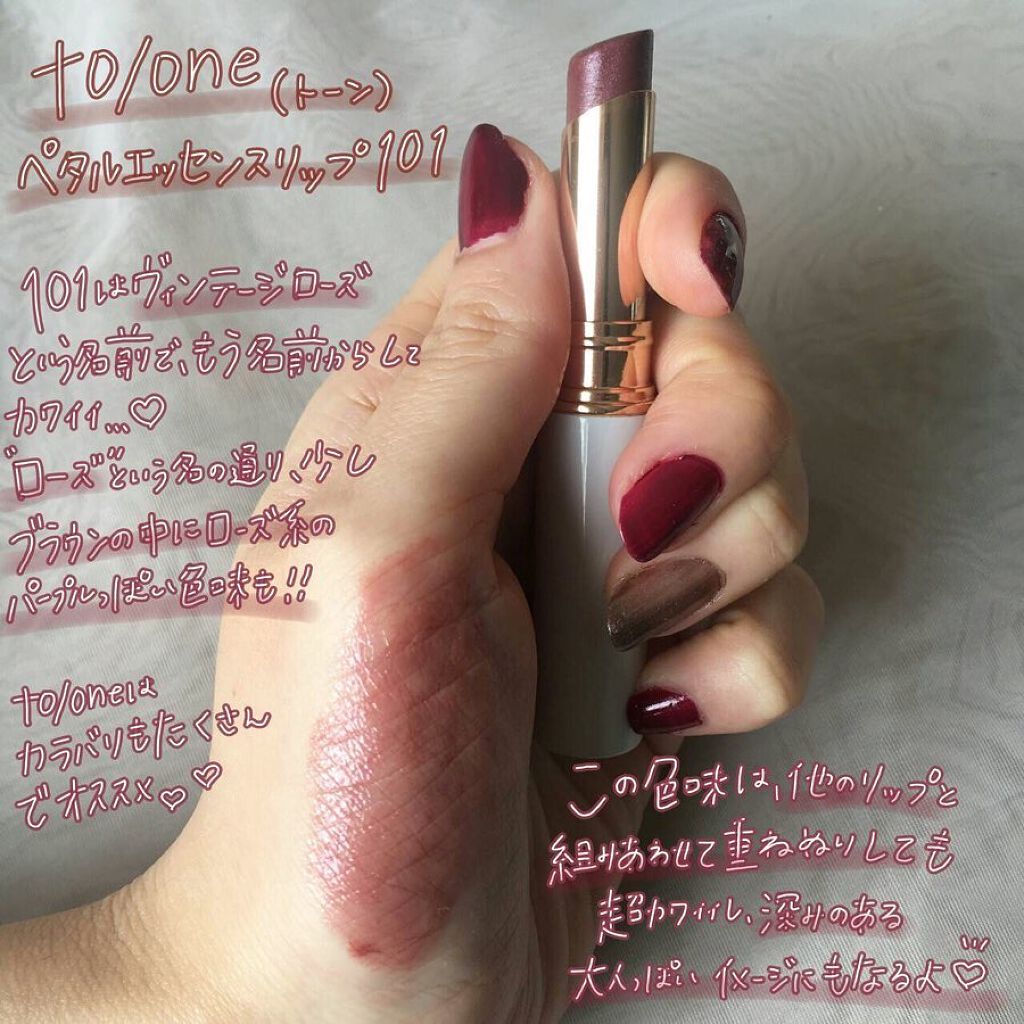 to/one(トーン)
ペタルエッセンスリップ101
101はヴィンテージローズ
という名前で、もう名前からして
カワイイ...♡
"ローズ"という名の通り、少し
ブラウンの中にローズ系の
パープルっぽい色味も!!
to/oneは
カラバリもたくさん
でオススメ♡♡
この色味は、他のリップと
組みあわせて重ねぬりしても
超カワイイし、深みのある
大人っぽいイメージにもなるよ♡